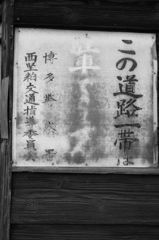 この道路一帯は
車
博多警察署
西堅粕交通指導委員会